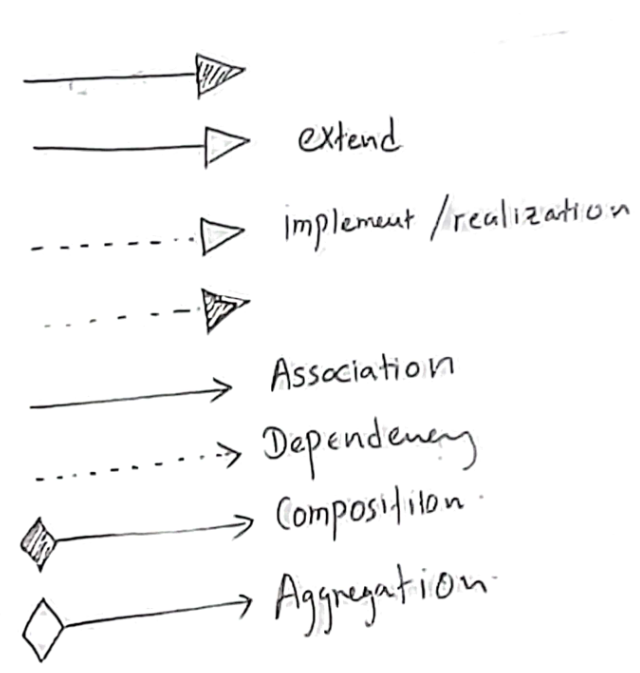 extend
implement / realization
Association
Dependency
Composition
Aggregation